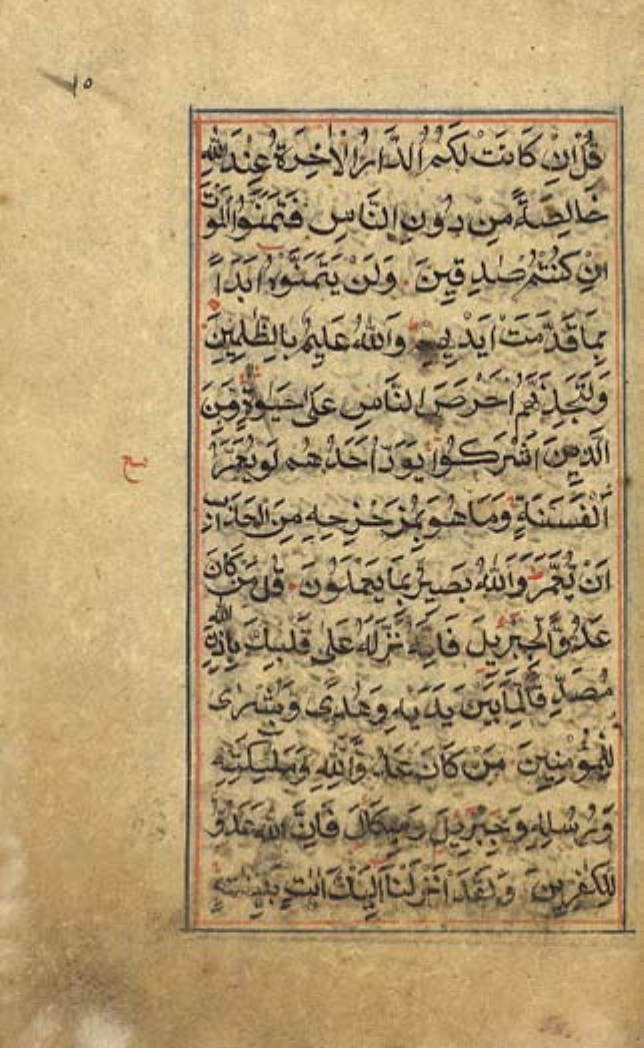 ١٥
قُلْ اِنْ كَانَتْ لَكُمُ الدَّارُ الْاٰخِرَةُ عِنْدَ اللّٰهِ
خَالِصَةً مِنْ دُونِ النَّاسِ فَتَمَنَّوُا الْمَوْتَ
اِنْ كُنْتُمْ صٰدِقِينَ وَلَنْ يَتَمَنَّوْهُ اَبَدًا
بِمَا قَدَّمَتْ اَيْدِيهِمْ وَاللّٰهُ عَلِيمٌ بِالظّٰلِمِينَ
وَلَتَجِدَنَّهُمْ اَحْرَصَ النَّاسِ عَلٰى حَيٰوةٍ وَمِنَ
الَّذِينَ اَشْرَكُوا يَوَدُّ اَحَدُهُمْ لَوْ يُعَمَّرُ
اَلْفَ سَنَةٍ وَمَا هُوَ بِمُزَحْزِحِهِ مِنَ الْعَذَابِ
اَنْ يُعَمَّرَ وَاللّٰهُ بَصِيرٌ بِمَا يَعْمَلُونَ قُلْ مَنْ كَانَ
عَدُوًّا لِجِبْرِيلَ فَاِنَّهُ نَزَّلَهُ عَلٰى قَلْبِكَ بِاِذْنِ اللّٰهِ
مُصَدِّقًا لِمَا بَيْنَ يَدَيْهِ وَهُدًى وَبُشْرٰى
لِلْمُؤْمِنِينَ مَنْ كَانَ عَدُوًّا لِلّٰهِ وَمَلٰئِكَتِهِ
وَرُسُلِهِ وَجِبْرِيلَ وَمِيكَالَ فَاِنَّ اللّٰهَ عَدُوٌّ
لِلْكٰفِرِينَ وَلَقَدْ اَنْزَلْنَا اِلَيْكَ اٰيٰتٍ بَيِّنٰتٍ